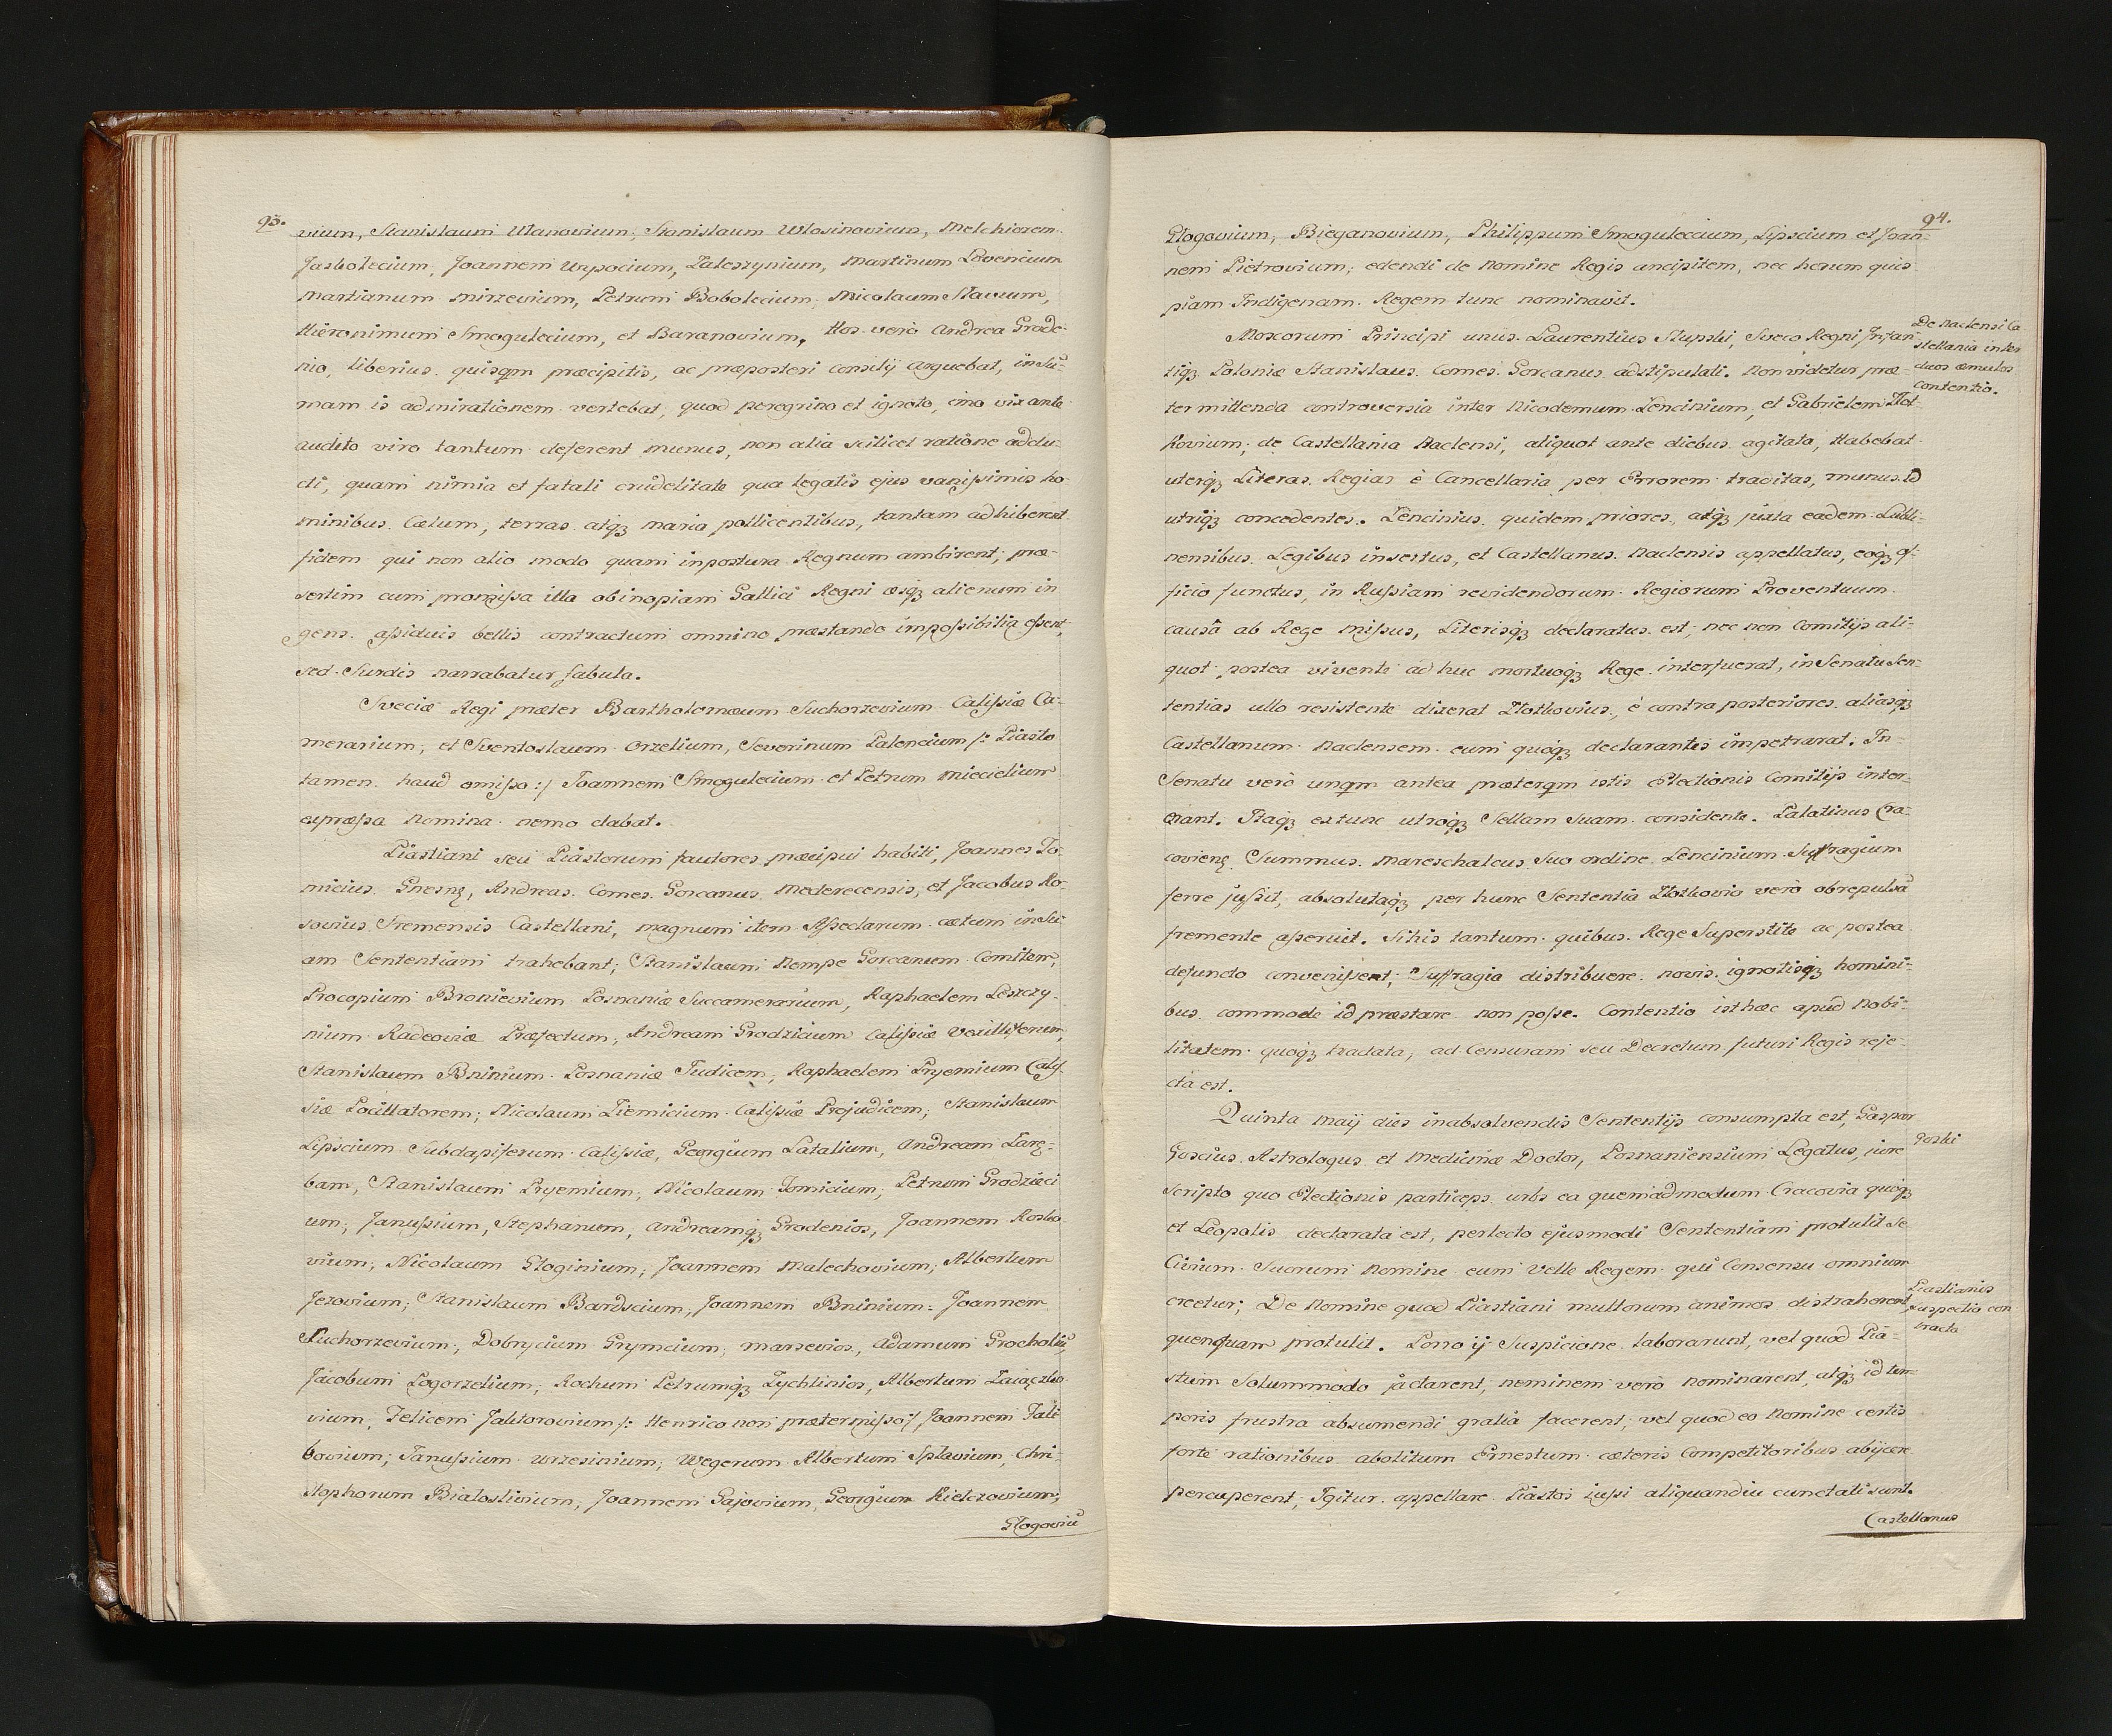 93.
vium, Stanislaum Ulanovium, Stanislaum Wlosinovium, Melchiorem
Jasbolecium, Joannem Urpocium, Zaleszynium, Martinum Lovencium
Martianum Mirzevium, Petrum Bobolecium, Micolaum Slavum,
Hieronimum Smogulecium, et Baranovium, Hos vero Andrea Grode-
nio, liberius quisqm præcipitis, ac præposteri consilij arguebat, in su-
mam is admirationem vertebat, quod peregrino et ignoto, imo vix ante
audito viro tantum deferent munus, non alia scilicet ratione addu-
di, quam nimia et fatali crudelitate qua legatis ejus vanissimis ho
minibus Cælum, terras atqz maria pollicentibus, tantam adhiberent
fidem qui non alio modo quam inpostura Regnum ambirent; præ-
sertim cum promissa illa ob inopiam Gallici Regni æsqz alienum in
gens assiduis bellis contractum omnino præstando impossibilia essent,
sed Surdis narrabatur fabula.
Sveciæ Regi præter Bartholomæum Suchorzevium Calissiæ Ca-
merarium, et Sventoslaum Orzelium, Severinum Palencium /: Piasto
tamen haud omisso :/ Joannem Smogulecium et Petrum Miecielium
expræssa Nomina nemo dabat.
Piastiani seu Piastorum fautores præcipui habiti, Joannes To-
micius Gnesnę, Andreas Comes Gorcanus Mederecensis, et Jacobus Ro-
sovius Sremensis Castellani, magnum item Asseclarum cætum in su
am Sententiam trahebant; Stanislaum Nempe Gorcanum Comitem,
Procopium Bronievium Posnaniæ Succamerarium, Raphaelem Leszczy-
nium Radeoviæ Præfectum, Andream Grodzicium Calissiæ Vexilliferum,
Stanislaum Bninium Posnaniæ Judicem, Raphaelem Pryemium Calis-
siæ Pocillatorem; Nicolaum Ziemicium Calissiæ Projudicem; Stanislaum
Lipscium Subdapiferum Calissiæ, Georgium Latalium, Andream Zarę-
bam, Stanislaum Pryemium, Nicolaum Tomicium, Petrum Grodzieci
um, Janussium, Stephanum, Andreamqz Grodenios, Joannem Rosbo
vium, Nicolaum Gloginium, Joannem Malechovium, Albertum
Jezovium; Stanislaum Bardscium, Joannem Bninium: Joannem
Suchorzevium; Dobrycium Grymcium; Marsevios, Adamum Grocholiũ,
Jacobum Pogorzelium, Rochum Petrumqz Zychlinios, Albertum Zaiączko
vium, Felicem Jaktorovium /: Henrico non prætermisso :/ Joannem Jali
bovium; Janussium Urzesinium; Wegerum Albertum Splavium, Chri-
stophorum Bialoslivium, Joannem Gajovium, Georgium Kielczovium;
Glogoviũ
94.
Glogovium, Bieganovium, Philippum Smogulecium, Lipscium et Joan-
nem Pietrovium; edendi de Nomine Regis ancipitem, nec horum quis
piam Indigenam Regem tunc nominavit.
Moscorum Principi unus Laurentius Slupski, Sveco Regni Infan
tiqz Poloniæ Stanislaus Comes Gorcanus adstipulati. Non videtur præ-
termittenda controversia inter Nicodemum Lencinium, et Gabrielem Zlot-
kovium, de Castellania Naclensi, aliquot ante diebus agitata, Habebat
uterqz Literas Regias è Cancellaria per Errorem traditas, munus id
utriqz concedentes. Lencinius quidem priores, atqz juxta eadem Lubli-
nensibus Legibus insertus, et Castellanus Naclensis appellatus, eoqz of-
ficio functus, in Russiam revidendorum Regiorum Proventuum
causâ ab Rege missus, Literisqz declaratus est; nec non Comitijs ali-
quot postea vivente ad huc mortuoqz Rege interfuerat, in Senatu Sen-
tentias ullo resistente dixerat Zlotkovius, è contra posteriores aliasqz
Castellanum Naclensem eum quoqz declarantes impetrarat. In-
Senatu verò unqm antea præterqm istis Electionis Comitijs inter-
erant. Itaqz extunc utroqz Sellam suam considente. Palatinus Cra-
coviens Summus Mareschalcus suo ordine Lencinium Suffragium
ferre jussit, absolutaqz per hunc Sententia Zlotkovio verò ob repulsã
fremente asseruit. Si his tantum quibus Rege Superstite ac postea
defuncto convenissent; Suffragia distribuere novis ignotisqz homini-
bus commode id præstare non posse. Contentio isthæc apud Nobi-
litatem quoqz tractata, ad Censuram seu Decretum futuri Regis reje-
cta est.
Quinta Maij dies in absolvendis Sententijs consumpta est, Gaspar
Goscius Astrologus et Medicinæ Doctor, Posnaniensium Legatus, jure
scripto quo Electionis particeps urbs ea quemadmodum Cracovia quoqz
et Leopolis declarata est, perlecto ejusmodi Sententiam protulit se
Civium Suorum Nomine eum velle Regem qui Consensu omnium
creetur; De Nomine quod Piastiani multorum animos distraherent
quenquam protulit. Porro ij Suspicione laborarunt, vel quod Pia-
stum Solummodo jactarent, neminem verò nominarent, atqz id tem
poris frustra absumendi gratiâ facerent; vel quod eo Nomine certis
forte rationibus abolitum Ernestum cæteris Competitoribus abijcere
percuperent; Igitur appellare Piastos jussi aliquandiu cunctati sunt.
Castellanus
De Naclensi Ca
stellania inter
duos æmulos
Contentio.
Goski
Piastianis
suspectio con
tracta